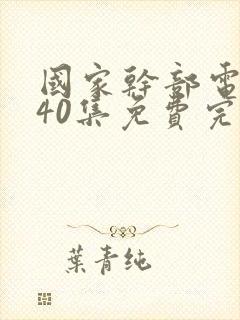 國家幹部電
40集免費完
葉青純